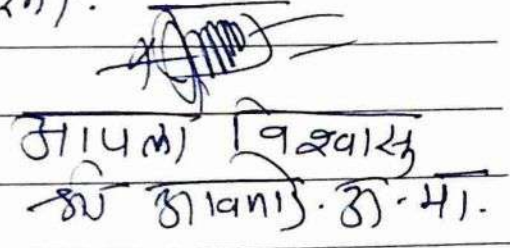 आपला विश्वासु
श्री आवनाडे. अ. मा.